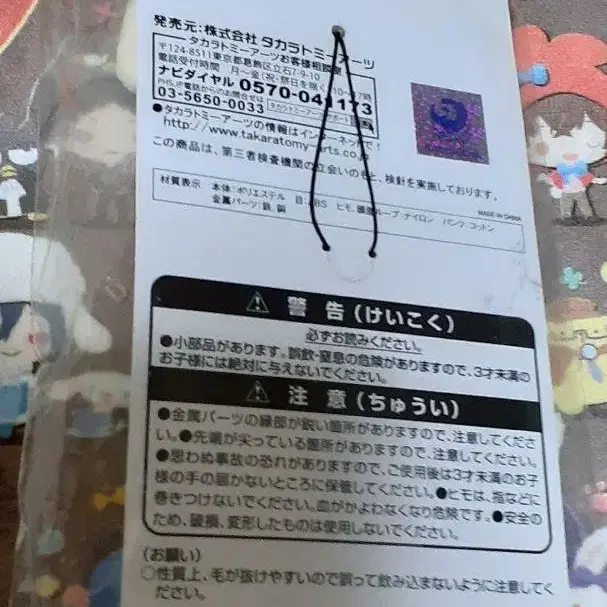 発売元:株式会社 タカラトミーアーツ
タカラトミーアーツお客様相談室
〒124-8511東京都葛飾区立石7-9-10
電話受付時間 月〜金(祝・祭日を除く)10〜17時
ナビダイヤル 0570-041173
PHS、IP電話からのお問合せは
03-5650-0033
●タカラトミーアーツの情報はインターネットで!
http://www.takaratomy-arts.co.jp
この商品は、第三者検査機関の立会いのもと、検針を実施しております。
MADE IN CHINA
材質表示 本体:ポリエステル 目:ABS ヒモ、ループ:ナイロン パンツ:コットン
金属パーツ:鉄、銅
警告(けいこく)
必ずお読みください。
●小部品があります。誤飲・窒息の危険がありますので、3才未満の
お子様には絶対に与えないでください。
注意(ちゅうい)
●金属パーツの縁部が鋭い箇所がありますので、注意してくださ
い。●先端が尖っている箇所がありますので、注意してください。
●思わぬ事故の恐れがありますので、ご使用後は3才未満のお子
様の手の届かないところに保管してください。●ヒモは、指などに
巻きつけないでください。血がかよわなくなり危険です。●安全の
ため、破損、変形したものは使用しないでください。
(お願い)
○性質上、毛が抜けやすいので誤って飲み込まないように注意してく
ださい。